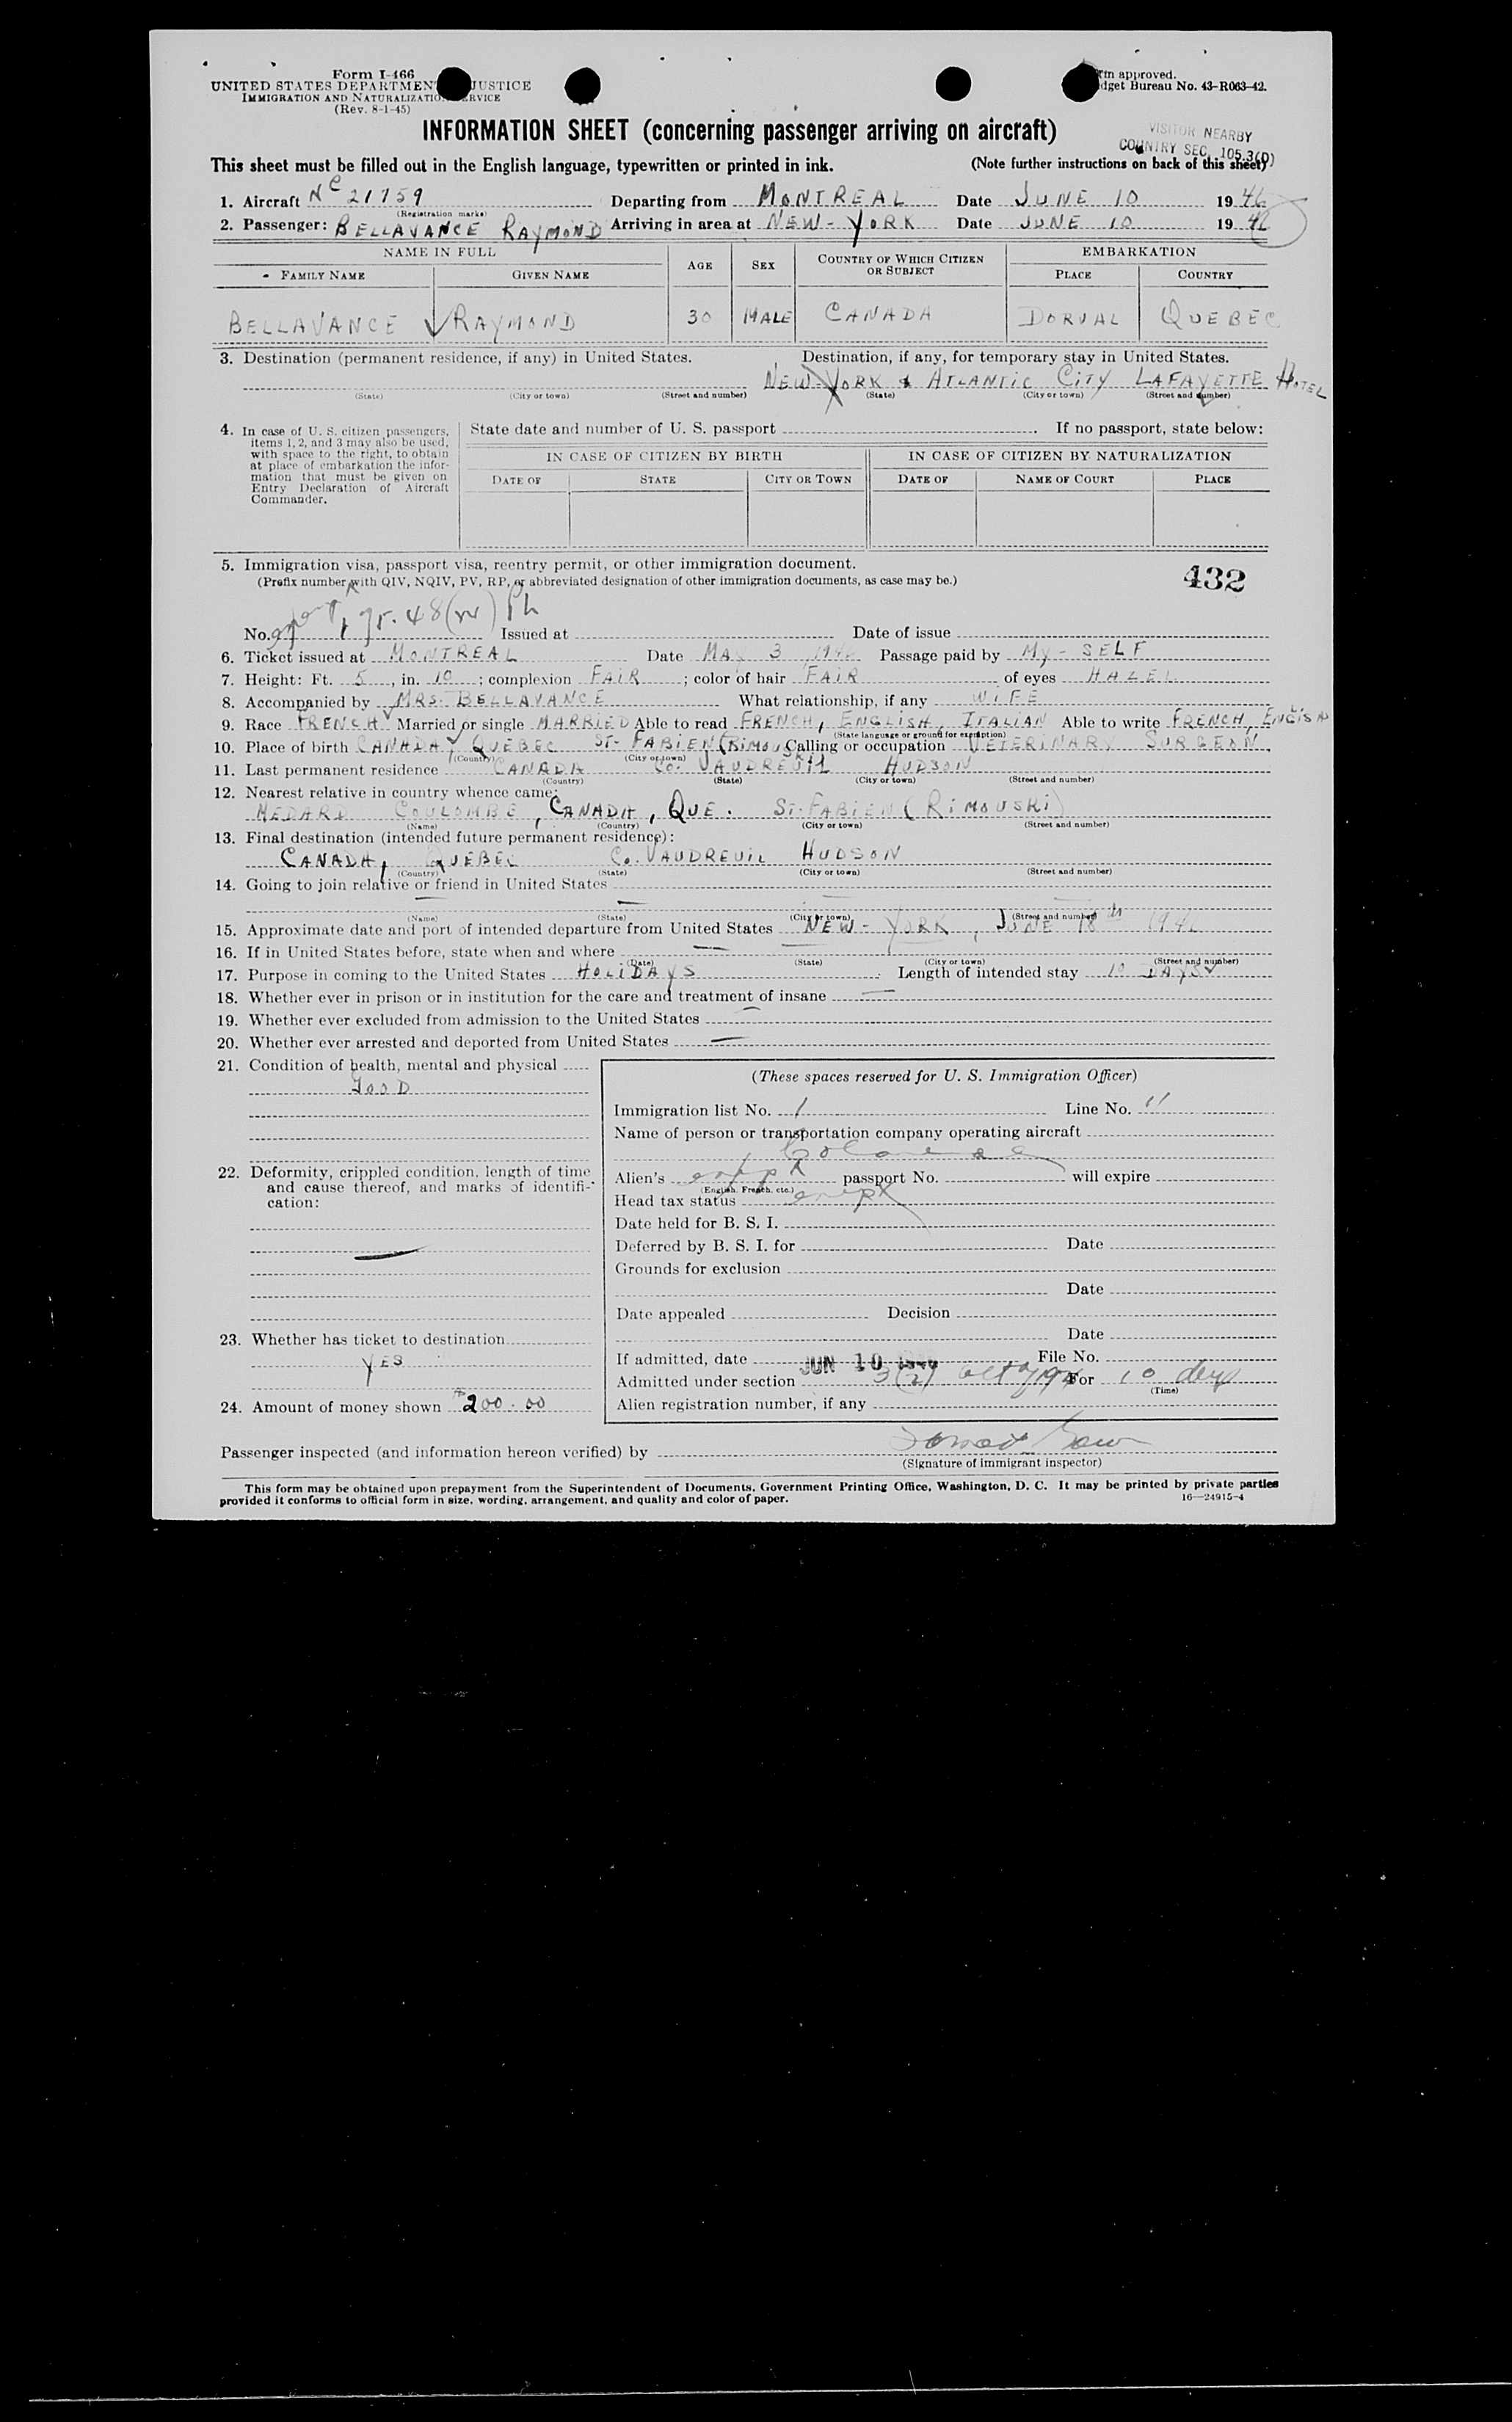 Form I-466
UNITED STATES DEPARTMENT JUSTICE
IMMIGRATION AND NATURALIZATION SERVICE
(Rev. 8-1-45)
Form approved.
Budget Bureau No. 43-R063-42.
INFORMATION SHEET (concerning passenger arriving on aircraft)
VISITOR NEARBY
COUNTRY SEC. 105.3(D)
This sheet must be filled out in the English language, typewritten or printed in ink. (Note further instructions on back of this sheet)
1. Aircraft NC 21759 Departing from MONTREAL Date JUNE 10 1946
(Registration marks)
2. Passenger: BELLAVANCE RAYMOND Arriving in area at NEW-YORK Date JUNE 10 1946
NAME IN FULL AGE SEX COUNTRY OF WHICH CITIZEN OR SUBJECT EMBARKATION
FAMILY NAME GIVEN NAME PLACE COUNTRY
BELLAVANCE RAYMOND 30 MALE CANADA DORVAL QUEBEC
3. Destination (permanent residence, if any) in United States. Destination, if any, for temporary stay in United States.
NEW-YORK & ATLANTIC CITY LAFAYETTE HOTEL
(State) (City or town) (Street and number) (State) (City or town) (Street and number)
4. In case of U. S. citizen passengers, items 1, 2, and 3 may also be used, with space to the right, to obtain at place of embarkation the information that must be given on Entry Declaration of Aircraft Commander.
State date and number of U. S. passport . If no passport, state below:
IN CASE OF CITIZEN BY BIRTH IN CASE OF CITIZEN BY NATURALIZATION
DATE OF STATE CITY OR TOWN DATE OF NAME OF COURT PLACE
5. Immigration visa, passport visa, reentry permit, or other immigration document.
(Prefix number with QIV, NQIV, PV, RP, or abbreviated designation of other immigration documents, as case may be.)
432
No. Issued at Date of issue
6. Ticket issued at MONTREAL Date MAY 3 1946 Passage paid by MY-SELF
7. Height: Ft. 5, in. 10; complexion FAIR; color of hair FAIR of eyes HAZEL
8. Accompanied by MRS. BELLAVANCE What relationship, if any WIFE
9. Race FRENCH Married or single MARRIED Able to read FRENCH, ENGLISH, ITALIAN Able to write FRENCH, ENGISH
(State language or ground for exemption)
10. Place of birth CANADA, QUEBEC ST-FABIEN (RIMOUSKI) Calling or occupation VETERINARY SURGEON
(Country) (City or town)
11. Last permanent residence CANADA Co. VAUDREUIL HUDSON
(Country) (State) (City or town) (Street and number)
12. Nearest relative in country whence came:
MEDARD COULOMBE, CANADA, QUE. ST-FABIEN (RIMOUSKI)
(Name) (Country) (City or town) (Street and number)
13. Final destination (intended future permanent residence):
CANADA, QUEBEC Co. VAUDREUIL HUDSON
(Country) (State) (City or town) (Street and number)
14. Going to join relative or friend in United States
(Name) (State) (City or town) (Street and number)
15. Approximate date and port of intended departure from United States NEW-YORK, JUNE 18th 1946
16. If in United States before, state when and where
(Date) (State) (City or town) (Street and number)
17. Purpose in coming to the United States HOLIDAYS Length of intended stay 10 DAYS
18. Whether ever in prison or in institution for the care and treatment of insane
19. Whether ever excluded from admission to the United States
20. Whether ever arrested and deported from United States
21. Condition of health, mental and physical
GOOD
22. Deformity, crippled condition, length of time and cause thereof, and marks of identification:
23. Whether has ticket to destination
YES
24. Amount of money shown 200.00
(These spaces reserved for U. S. Immigration Officer)
Immigration list No. 1 Line No. 11
Name of person or transportation company operating aircraft
Colonial
Alien's passport No. will expire
(English, French, etc.)
Head tax status
Date held for B. S. I.
Deferred by B. S. I. for Date
Grounds for exclusion
Date
Date appealed Decision
Date
If admitted, date JUN 10 1946 File No.
Admitted under section 3(2) For 10 days
(Time)
Alien registration number, if any
Passenger inspected (and information hereon verified) by
(Signature of immigrant inspector)
This form may be obtained upon prepayment from the Superintendent of Documents, Government Printing Office, Washington, D. C. It may be printed by private parties
provided it conforms to official form in size, wording, arrangement, and quality and color of paper.
16—24915-4